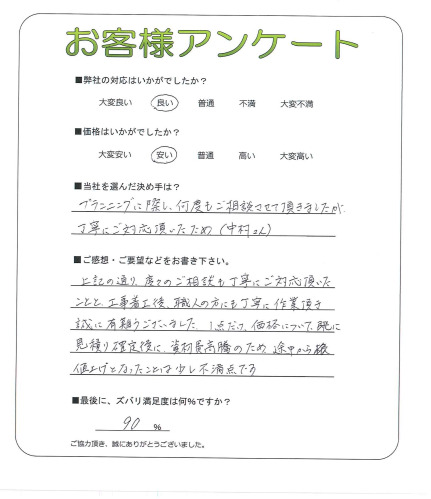 お客様アンケート
■弊社の対応はいかがでしたか？
大変良い 良い 普通 不満 大変不満
■価格はいかがでしたか？
大変安い 安い 普通 高い 大変高い
■当社を選んだ決め手は？
プランニングに際し、何度もご相談させて頂きましたが、
丁寧にご対応頂いたため（中村さん）
■ご感想・ご要望などをお書き下さい。
上記の通り、度々のご相談も丁寧にご対応頂いた
ことと、工事着工後、職人の方にも丁寧に作業頂き
誠に有難うございました。1点だけ、価格について、既に
見積り確定後に、資材費高騰のため、途中から
値上げとなったことは少し不満点です
■最後に、ズバリ満足度は何％ですか？
90 %
ご協力頂き、誠にありがとうございました。